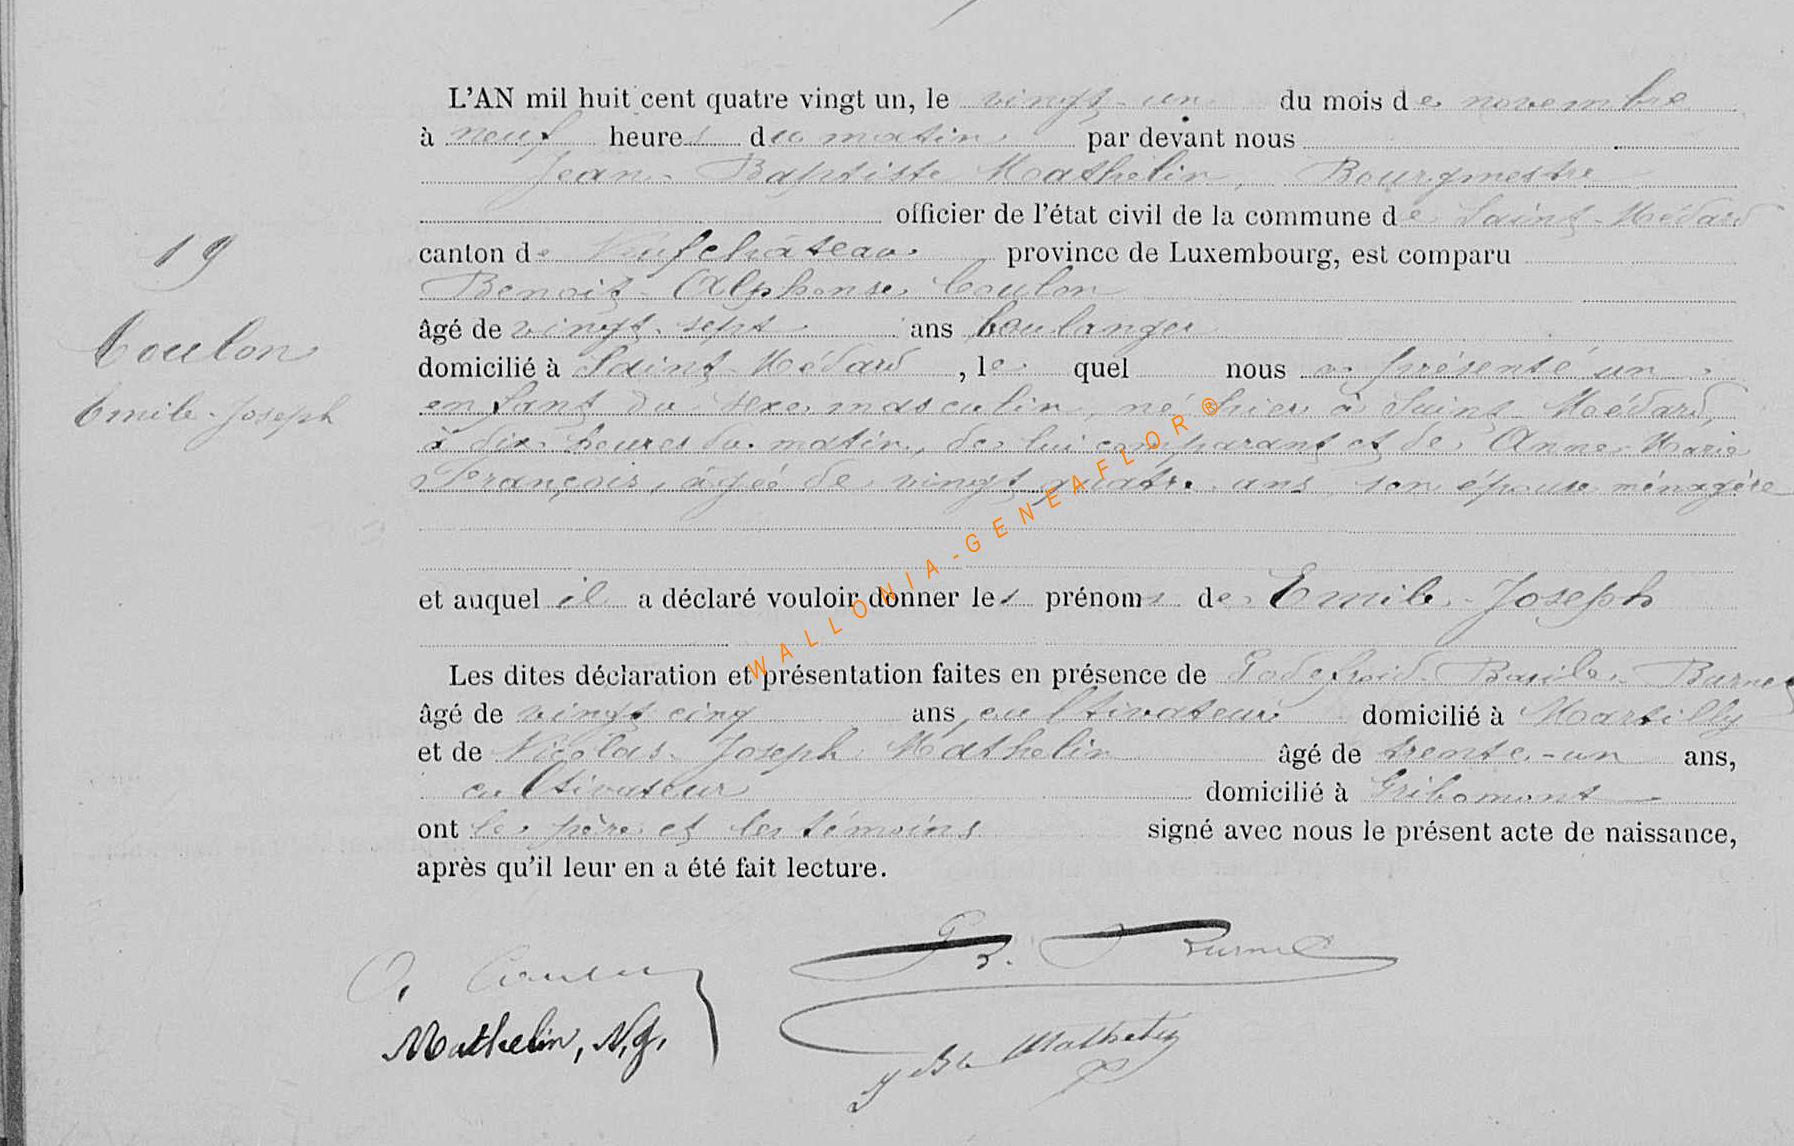 L'AN mil huit cent quatre vingt un, le vingt-un du mois de novembre
à neuf heures du matin par devant nous
Jean-Baptiste Mathelin, Bourgmestre
officier de l'état civil de la commune de Saint-Médard
canton de Neufchâteau province de Luxembourg, est comparu
Benoit-Alphonse Coulon
âgé de vingt-sept ans boulanger
domicilié à Saint-Médard, lequel nous a présenté un
enfant du sexe masculin, né hier à Saint-Médard,
à dix heures du matin, de lui comparant et de Anne-Marie
François, âgée de vingt quatre ans, son épouse ménagère
et auquel il a déclaré vouloir donner les prénoms de Emile-Joseph
Les dites déclaration et présentation faites en présence de Godefroid-Basile-Burnet
âgé de vingt cinq ans, cultivateur domicilié à Martilly
et de Nicolas-Joseph Mathelin âgé de trente-un ans,
cultivateur domicilié à Gribomont
ont le père et les témoins signé avec nous le présent acte de naissance,
après qu'il leur en a été fait lecture.
19
Coulon
Emile-Joseph
A. Coulon
G. B. Burnet
Mathelin, N.J.
J Bte Mathelin
WALLONIA-GENEAFLOR®